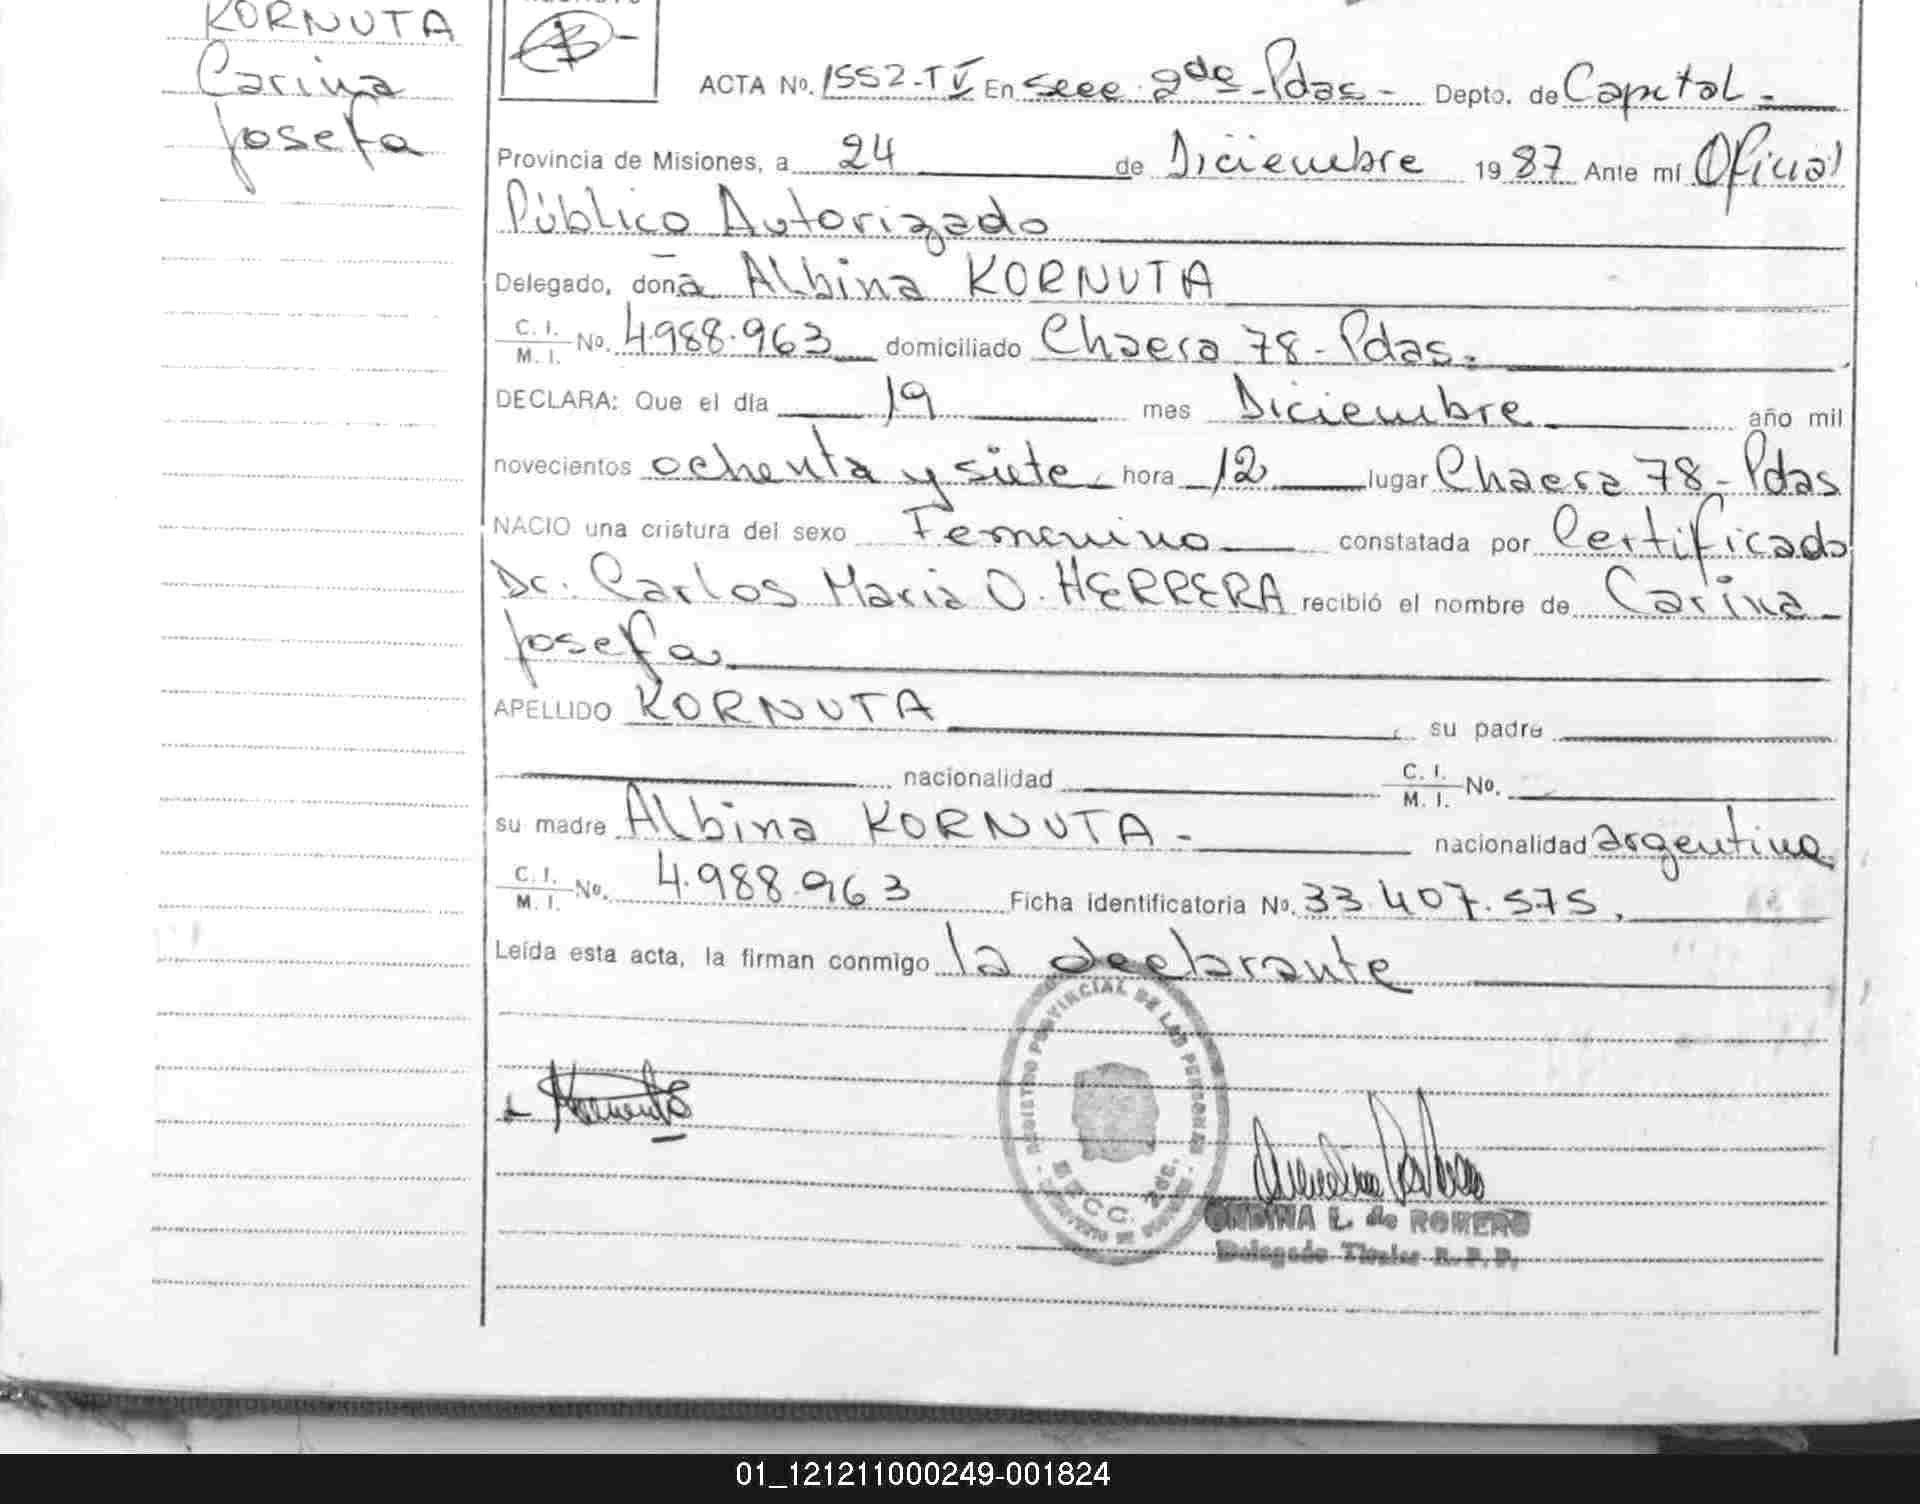 KORNUTA
Carina
Josefa
ACTA No. 1552-TV En Secc. 2da - Pdas - Depto. de Capital -
Provincia de Misiones, a 24 de Diciembre 1987 Ante mí Oficial
Público Autorizado
Delegado, doña Albina KORNUTA
C. I. M. I. No. 4.988.963 domiciliado Chacra 78 - Pdas.
DECLARA: Que el día 19 mes Diciembre año mil
novecientos ochenta y siete hora 12 lugar Chacra 78 - Pdas
NACIO una criatura del sexo Femenino constatada por Certificado
Dr. Carlos Maria O. HERRERA recibió el nombre de Carina
Josefa
APELLIDO KORNUTA su padre
nacionalidad C. I. M. I. No.
su madre Albina KORNUTA - nacionalidad argentina
C. I. M. I. No. 4.988.963 Ficha identificatoria No. 33.407.575,
Leída esta acta, la firman conmigo la declarante
REGISTRO PROVINCIAL DE LAS PERSONAS
SECC. 2da.
ONDINA L. de ROMERO
Delegado Titular R. P. P.
01_121211000249-001824